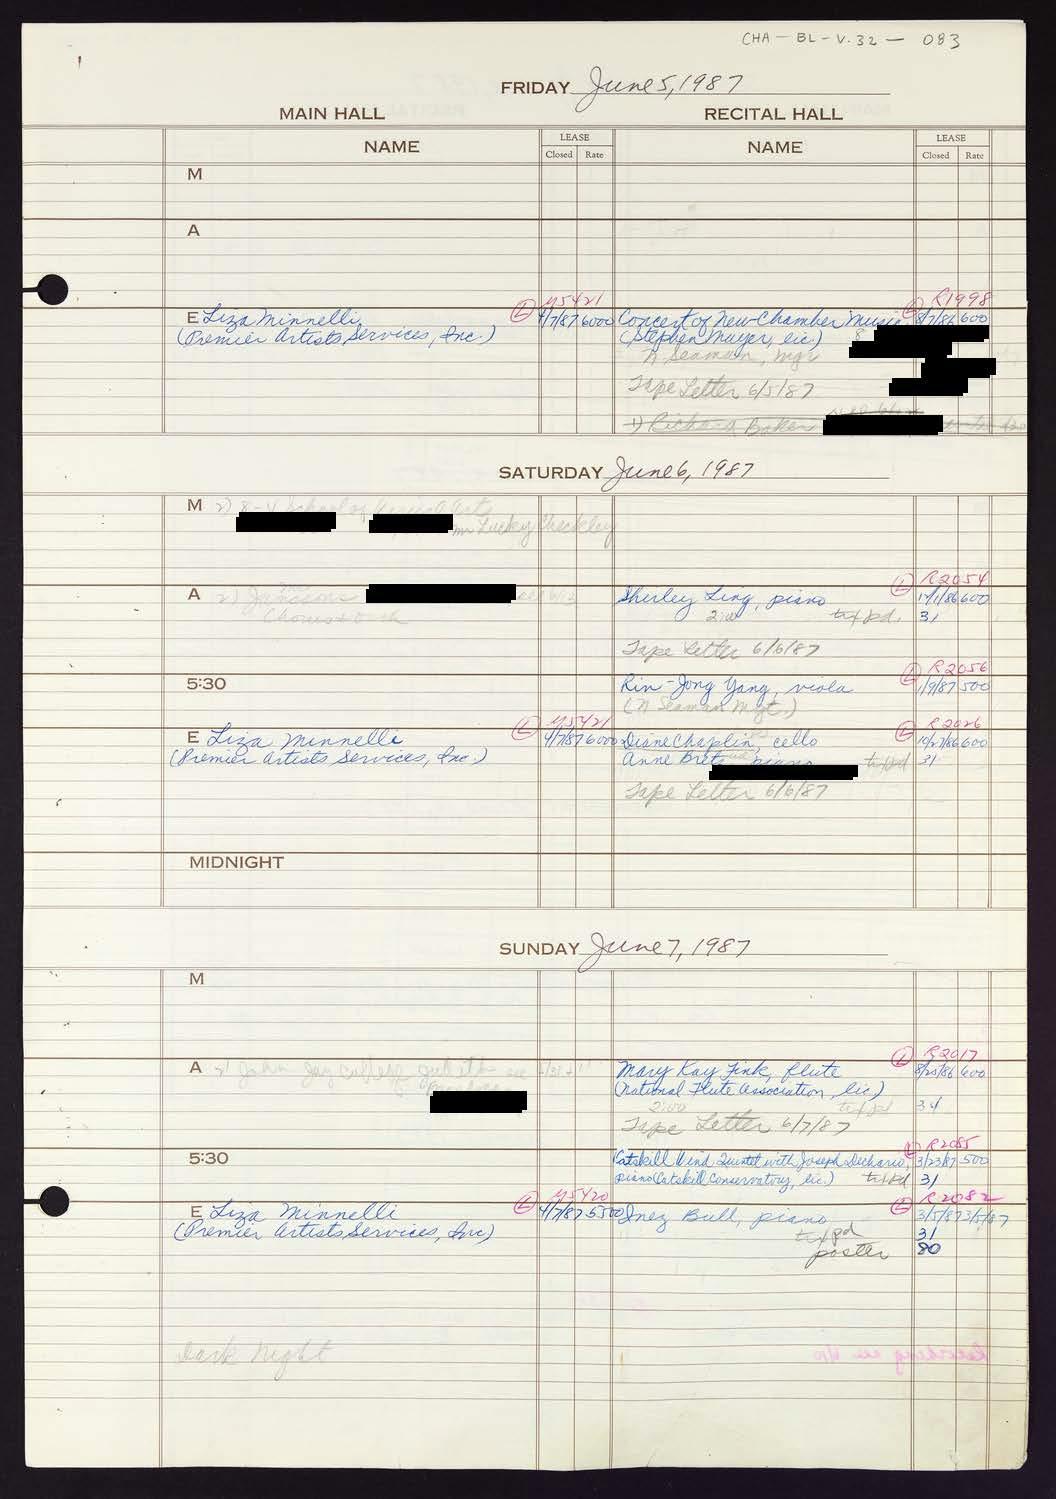 CHA - BL - V. 32 - 083
FRIDAY June 5, 1987
MAIN HALL RECITAL HALL
NAME LEASE NAME LEASE
Closed Rate Closed Rate
M
A
M5421 R1998
E Liza Minnelli L 4/7/87 6000 Concert of New Chamber Music L 8/7/86 600
(Premier Artists Services, Inc.) (Stephen Mayer, lic.) 8
N Seaman, mgr
Tape Letter 6/5/87
1) Richard Baker
SATURDAY June 6, 1987
M 2) 8-4 School of
Mr Lucky Checkley
R2054
A 2) Shirley Ling, piano L 600
Chorus + Orch 2:00 txf pd. 31
Tape Letter 6/6/87
R2056
5:30 Rin-Jong Yang, viola L 1/9/87 500
(N Seaman Mgt.)
M5421 R2026
E Liza Minnelli L 4/7/87 6000 Diane Chaplin, cello L 10/27/86 600
(Premier Artists Services, Inc.) Anne piano txf pd 31
Tape Letter 6/6/87
MIDNIGHT
SUNDAY June 7, 1987
M
R2017
A 2) John Jay College see Mary Kay Fink, flute L 8/25/86 600
(National Flute Association, lic)
2:00 txf pd 31
Tape Letter 6/7/87
R2085
5:30 Catskill Wind Quintet with Joseph Dechario, L 3/23/87 500
piano (Catskill Conservatory, lic.) txf pd 31
M5420 R2082
E Liza Minnelli L 4/7/87 5500 Inez Bull, piano L 3/5/87 3/5/87
(Premier Artists Services, Inc) txf pd 31
poster 80
Dark Night